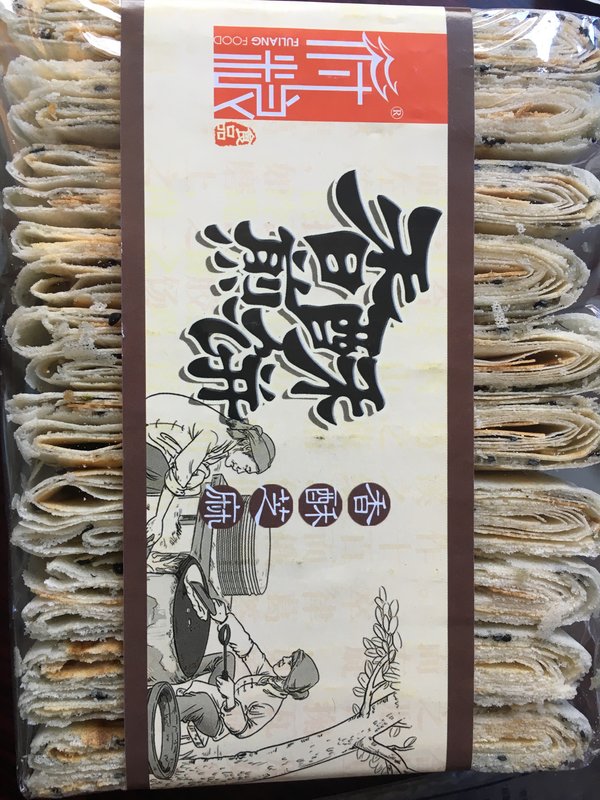 FULIANG FOOD
®
食品
香酥
煎饼
香酥芝麻